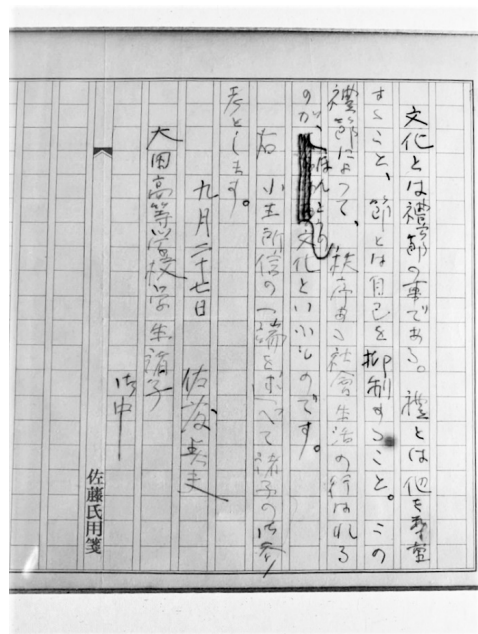 文化とは禮節の事である。禮とは他を尊重
すること、節とは自己を抑制すること。この
禮節によつて、秩序ある社會生活の行はれる
のが、ほんとの文化といふものです。
右 小生所信の一端を述べて諸子の御参
考とします。
九月二十七日 佐藤春夫
大田高等学校学生諸子
御中
佐藤氏用箋